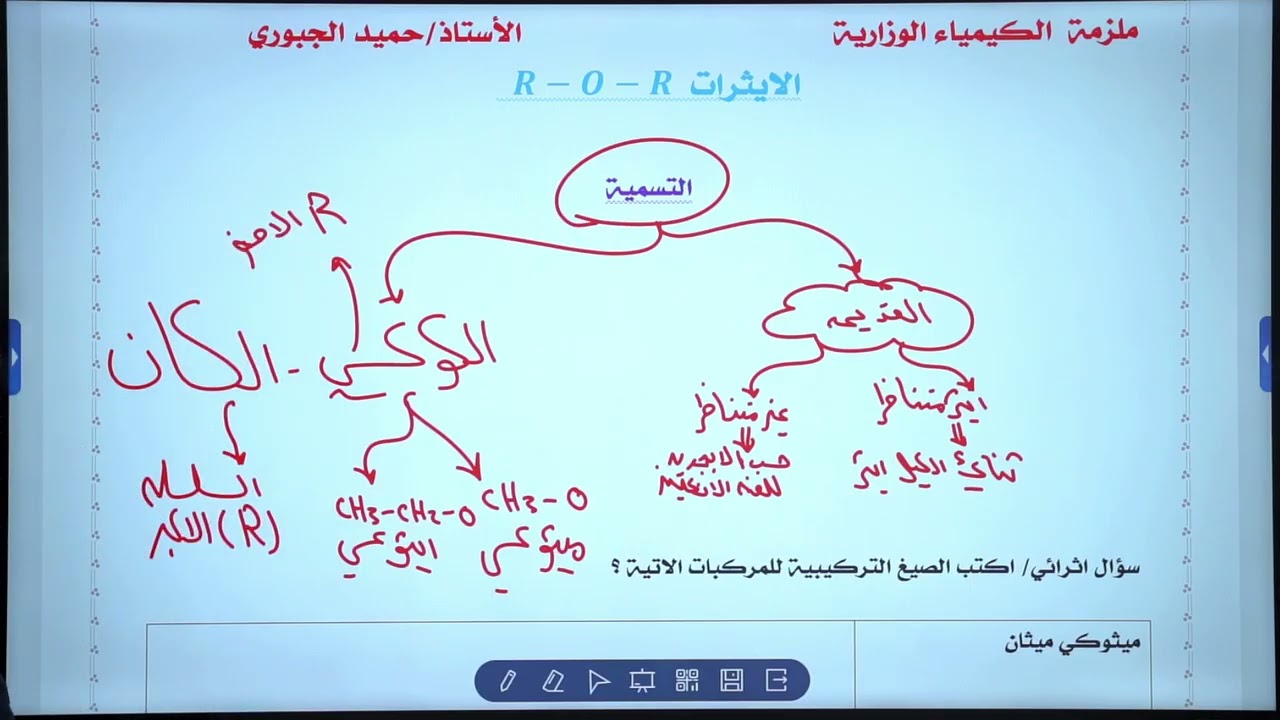 ملزمة الكيمياء الوزارية
الأستاذ/حميد الجبوري
الايثرات R – O – R
التسمية
القديمة
ايثر متناظر
ثنائي الكيل ايثر
غير متناظر
حسب الابجدية
للغة الانكليزية
الكوكسي - الكان
R الاصغر
CH3-O
ميثوكسي
CH3-CH2-O
ايثوكسي
السلسلة
الاكبر (R)
سؤال اثرائي/ اكتب الصيغ التركيبية للمركبات الاتية ؟
ميثوكي ميثان